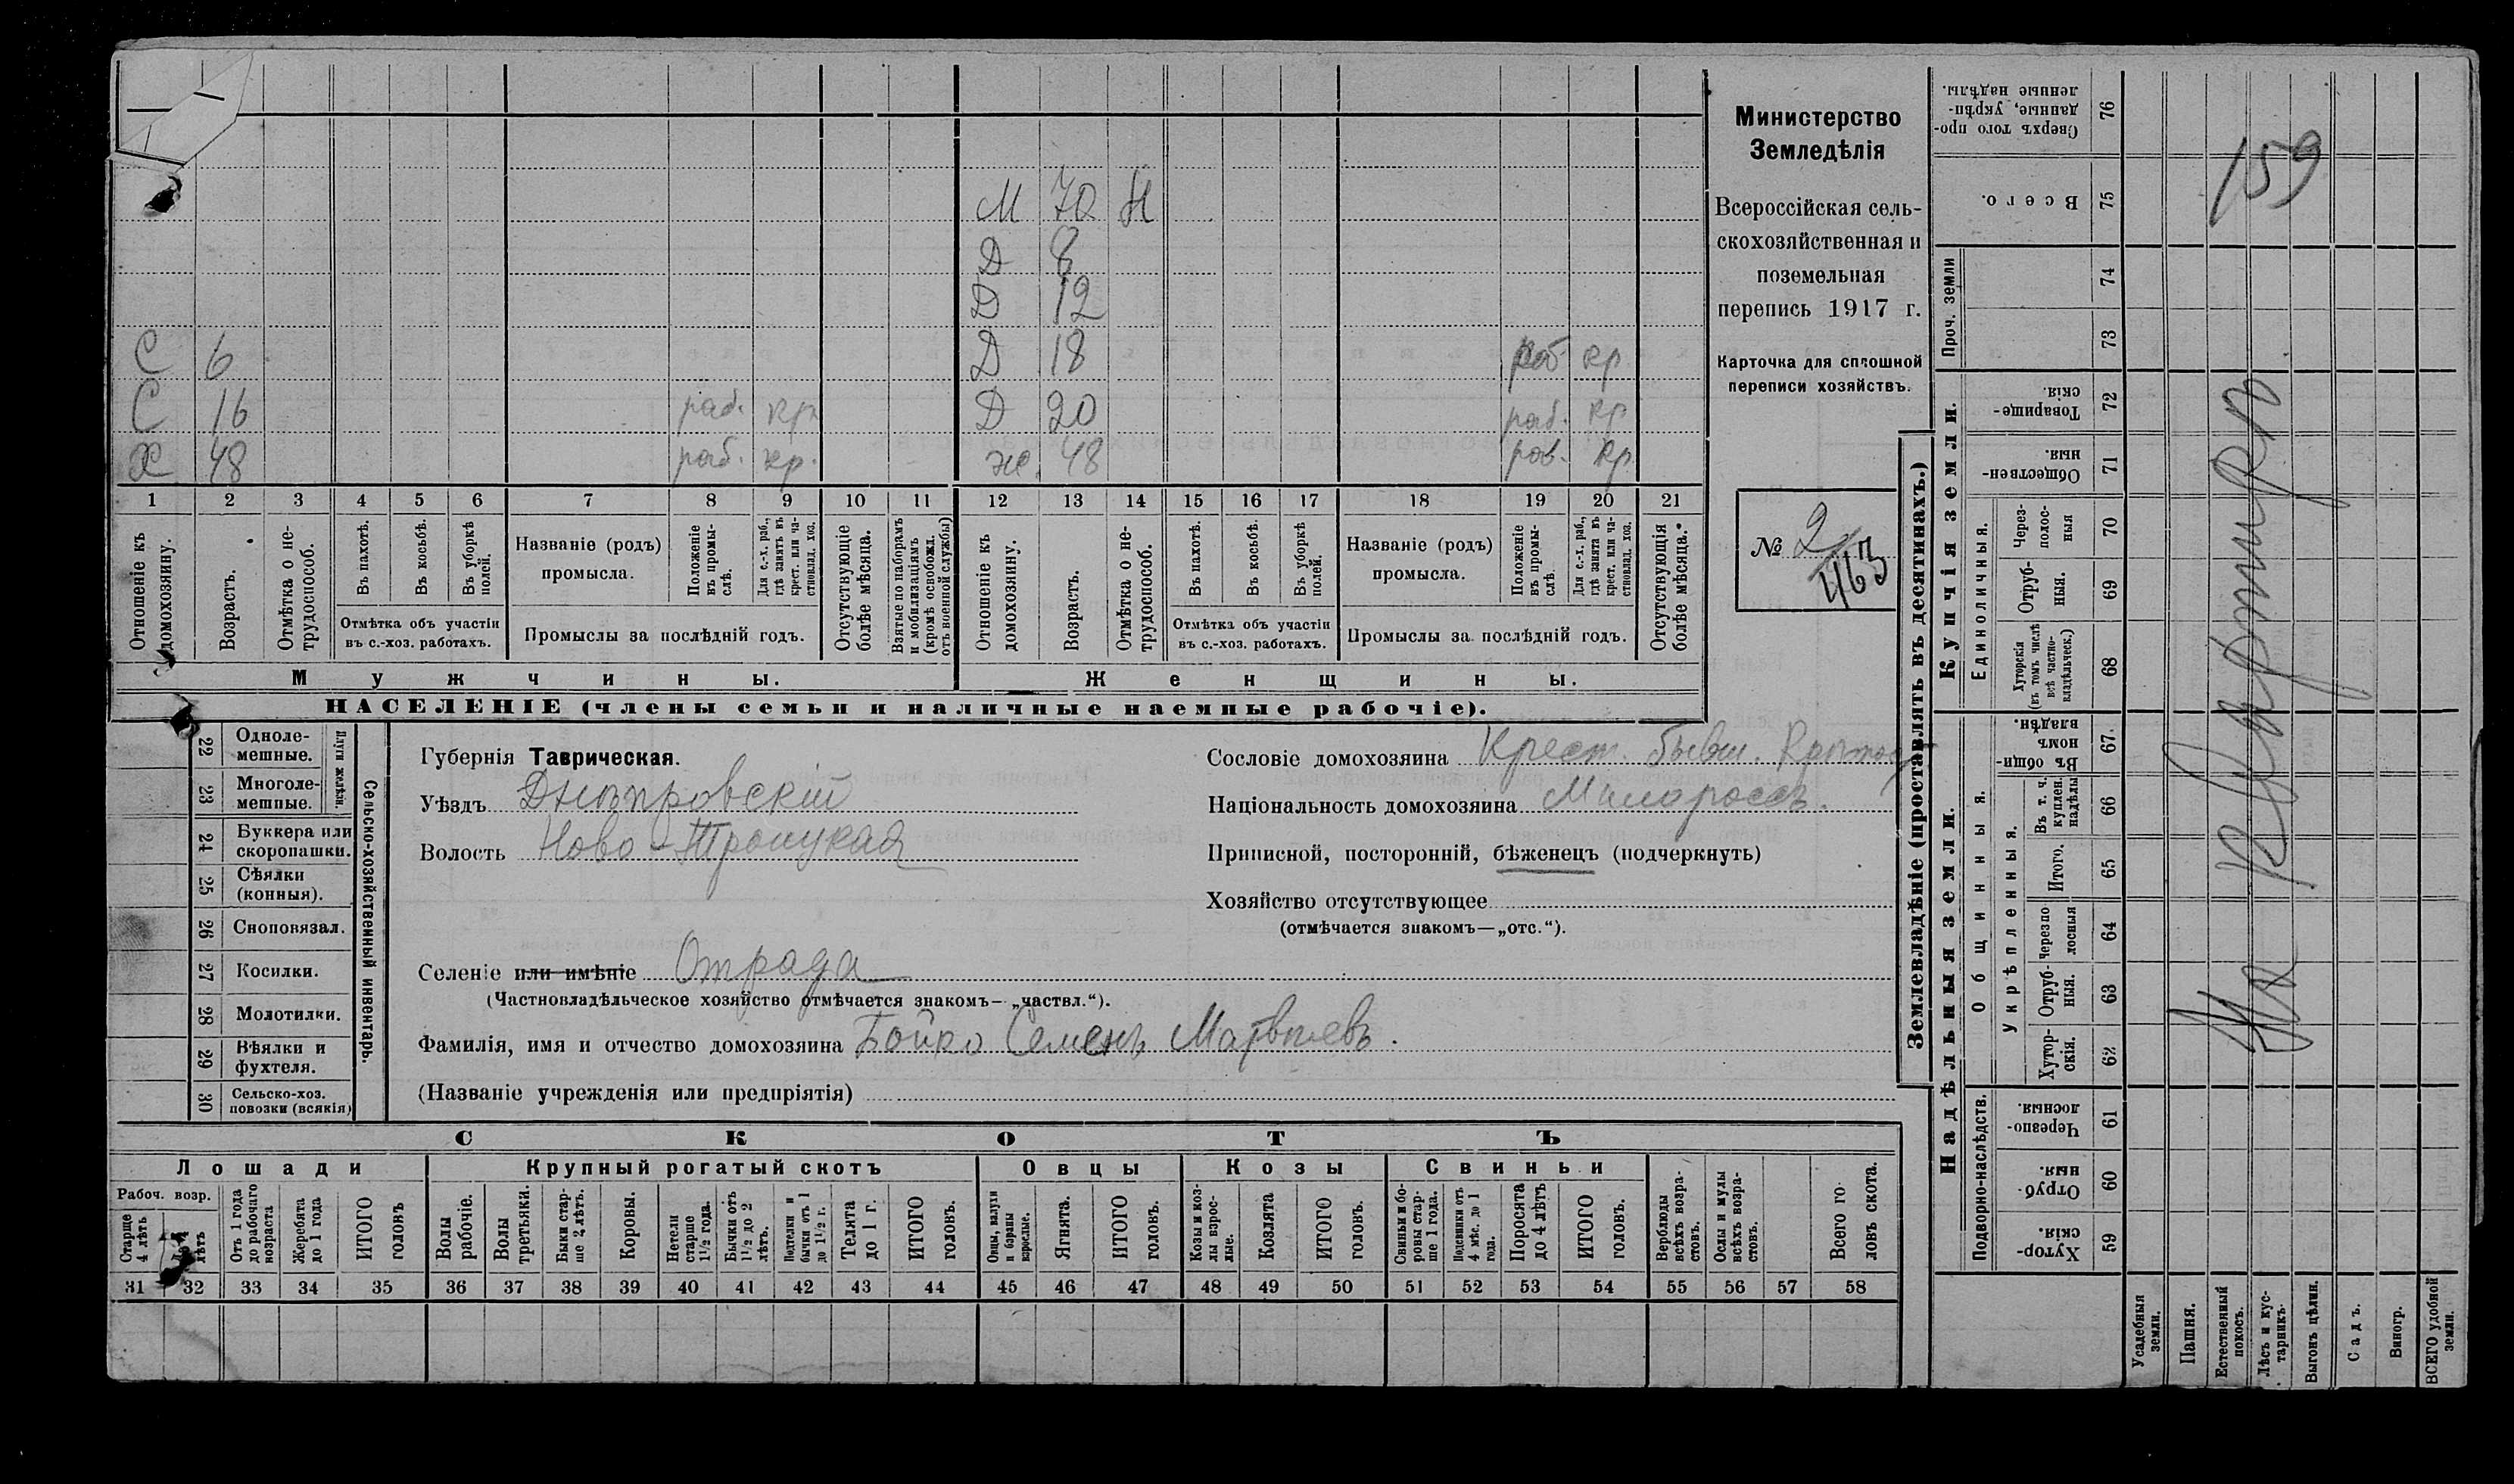 М 70 Н
Д 8
Д 12
С 6 Д 18 раб. кр
С 16 раб. кр. Д 20 раб. кр
Х 48 раб. кр. ж. 48 раб. кр.
1 2 3 4 5 6 7 8 9 10 11 12 13 14 15 16 17 18 19 20 21
Отношеніе къ домохозяину.
Возрастъ.
Отмѣтка о не-трудоспособ.
Въ пахотѣ.
Въ косьбѣ.
Въ уборкѣ полей.
Отмѣтка объ участіи въ с.-хоз. работахъ.
Названіе (родъ) промысла.
Положеніе въ промы-слѣ.
Для с.-х. раб., гдѣ занятъ въ крест. или ча-стновлад. хоз.
Промыслы за послѣдній годъ.
Отсутствующіе болѣе мѣсяца.
Взятые по наборамъ и мобилизаціямъ (кромѣ освобожд. отъ военной службы)
Отношеніе къ домохозяину.
Возрастъ.
Отмѣтка о не-трудоспособ.
Въ пахотѣ.
Въ косьбѣ.
Въ уборкѣ полей.
Отмѣтка объ участіи въ с.-хоз. работахъ.
Названіе (родъ) промысла.
Положеніе въ промы-слѣ.
Для с.-х. раб., гдѣ занята въ крест. или ча-стновлад. хоз.
Промыслы за послѣдній годъ.
Отсутствующія болѣе мѣсяца.
Мужчины.
Женщины.
НАСЕЛЕНІЕ (члены семьи и наличные наемные рабочіе).
Министерство
Земледѣлія
Всероссійская сель-
скохозяйственная и
поземельная
перепись 1917 г.
Карточка для сплошной
переписи хозяйствъ.
№ 2
463
22 Одноле-мешные.
23 Многоле-мешные.
Плуги желѣзн.
24 Буккера или скоропашки.
25 Сѣялки (конныя).
26 Сноповязал.
27 Косилки.
28 Молотилки.
29 Вѣялки и фухтеля.
30 Сельско-хоз. повозки (всякія)
Сельско-хозяйственный инвентарь.
Губернія Таврическая.
Уѣздъ Днѣпровскій
Волость Ново-Троицкая
Селеніе или имѣніе Отрада
(Частновладѣльческое хозяйство отмѣчается знакомъ—„частвл.“).
Фамилія, имя и отчество домохозяина Бойко Семенъ Матвѣевъ.
(Названіе учрежденія или предпріятія)
Сословіе домохозяина Крест. бывш.
Національность домохозяина Малороссъ.
Приписной, посторонній, бѣженецъ (подчеркнуть)
Хозяйство отсутствующее
(отмѣчается знакомъ—„отс.“).
СКОТЪ
Лошади
Крупный рогатый скотъ
Овцы
Козы
Свиньи
Рабоч. возр.
Старше 4 лѣтъ
до 4 лѣтъ
Отъ 1 года до рабочаго возраста
Жеребята до 1 года
ИТОГО головъ
Волы рабочіе.
Волы третьяки.
Быки стар-ше 2 лѣтъ.
Коровы.
Нетели старше 1½ года.
Бычки отъ 1½ до 2 лѣтъ.
Подтелки и бычки отъ 1 до 1½ г.
Телята до 1 г.
ИТОГО головъ.
Овцы, валухи и бараны взрослые.
Ягнята.
ИТОГО головъ.
Козы и коз-лы взрос-лые.
Козлята
ИТОГО головъ.
Свиньи и бо-ровы стар-ше 1 года.
Подсвинки отъ 4 мѣс. до 1 года.
Поросята до 4 лѣтъ
ИТОГО головъ.
Верблюды всѣхъ возра-стовъ.
Ослы и мулы всѣхъ возра-стовъ.
Всего го-ловъ скота.
31 32 33 34 35 36 37 38 39 40 41 42 43 44 45 46 47 48 49 50 51 52 53 54 55 56 57 58
Землевладѣніе (проставлять въ десятинахъ.)
Сверхъ того про-данные, укрѣп-ленные надѣлы. 76
Всего. 75
Проч. земли
74
73
Купчія земли.
Товарище-скія. 72
Обществен-ныя. 71
Единоличныя.
Через-полос-ныя 70
Отруб-ныя. 69
Хуторскія (въ томъ числѣ всѣ частно-владѣльческ.) 68
Надѣльныя земли.
Общинныя.
Въ общи-номъ владѣн. 67
Укрѣпленныя.
Въ т. ч. куплен. надѣлы 66
Итого. 65
Черезпо-лосныя 64
Отруб-ныя. 63
Хутор-скія. 62
Подворно-наслѣдств.
Черезпо-лосныя. 61
Отруб-ныя. 60
Хутор-скія. 59
Усадебныя земли.
Пашня.
Естественный покосъ.
Лѣсъ и кус-тарникъ.
Выгонъ цѣлин.
Садъ.
Виногр.
ВСЕГО удобной земли.
159
На квартирѣ